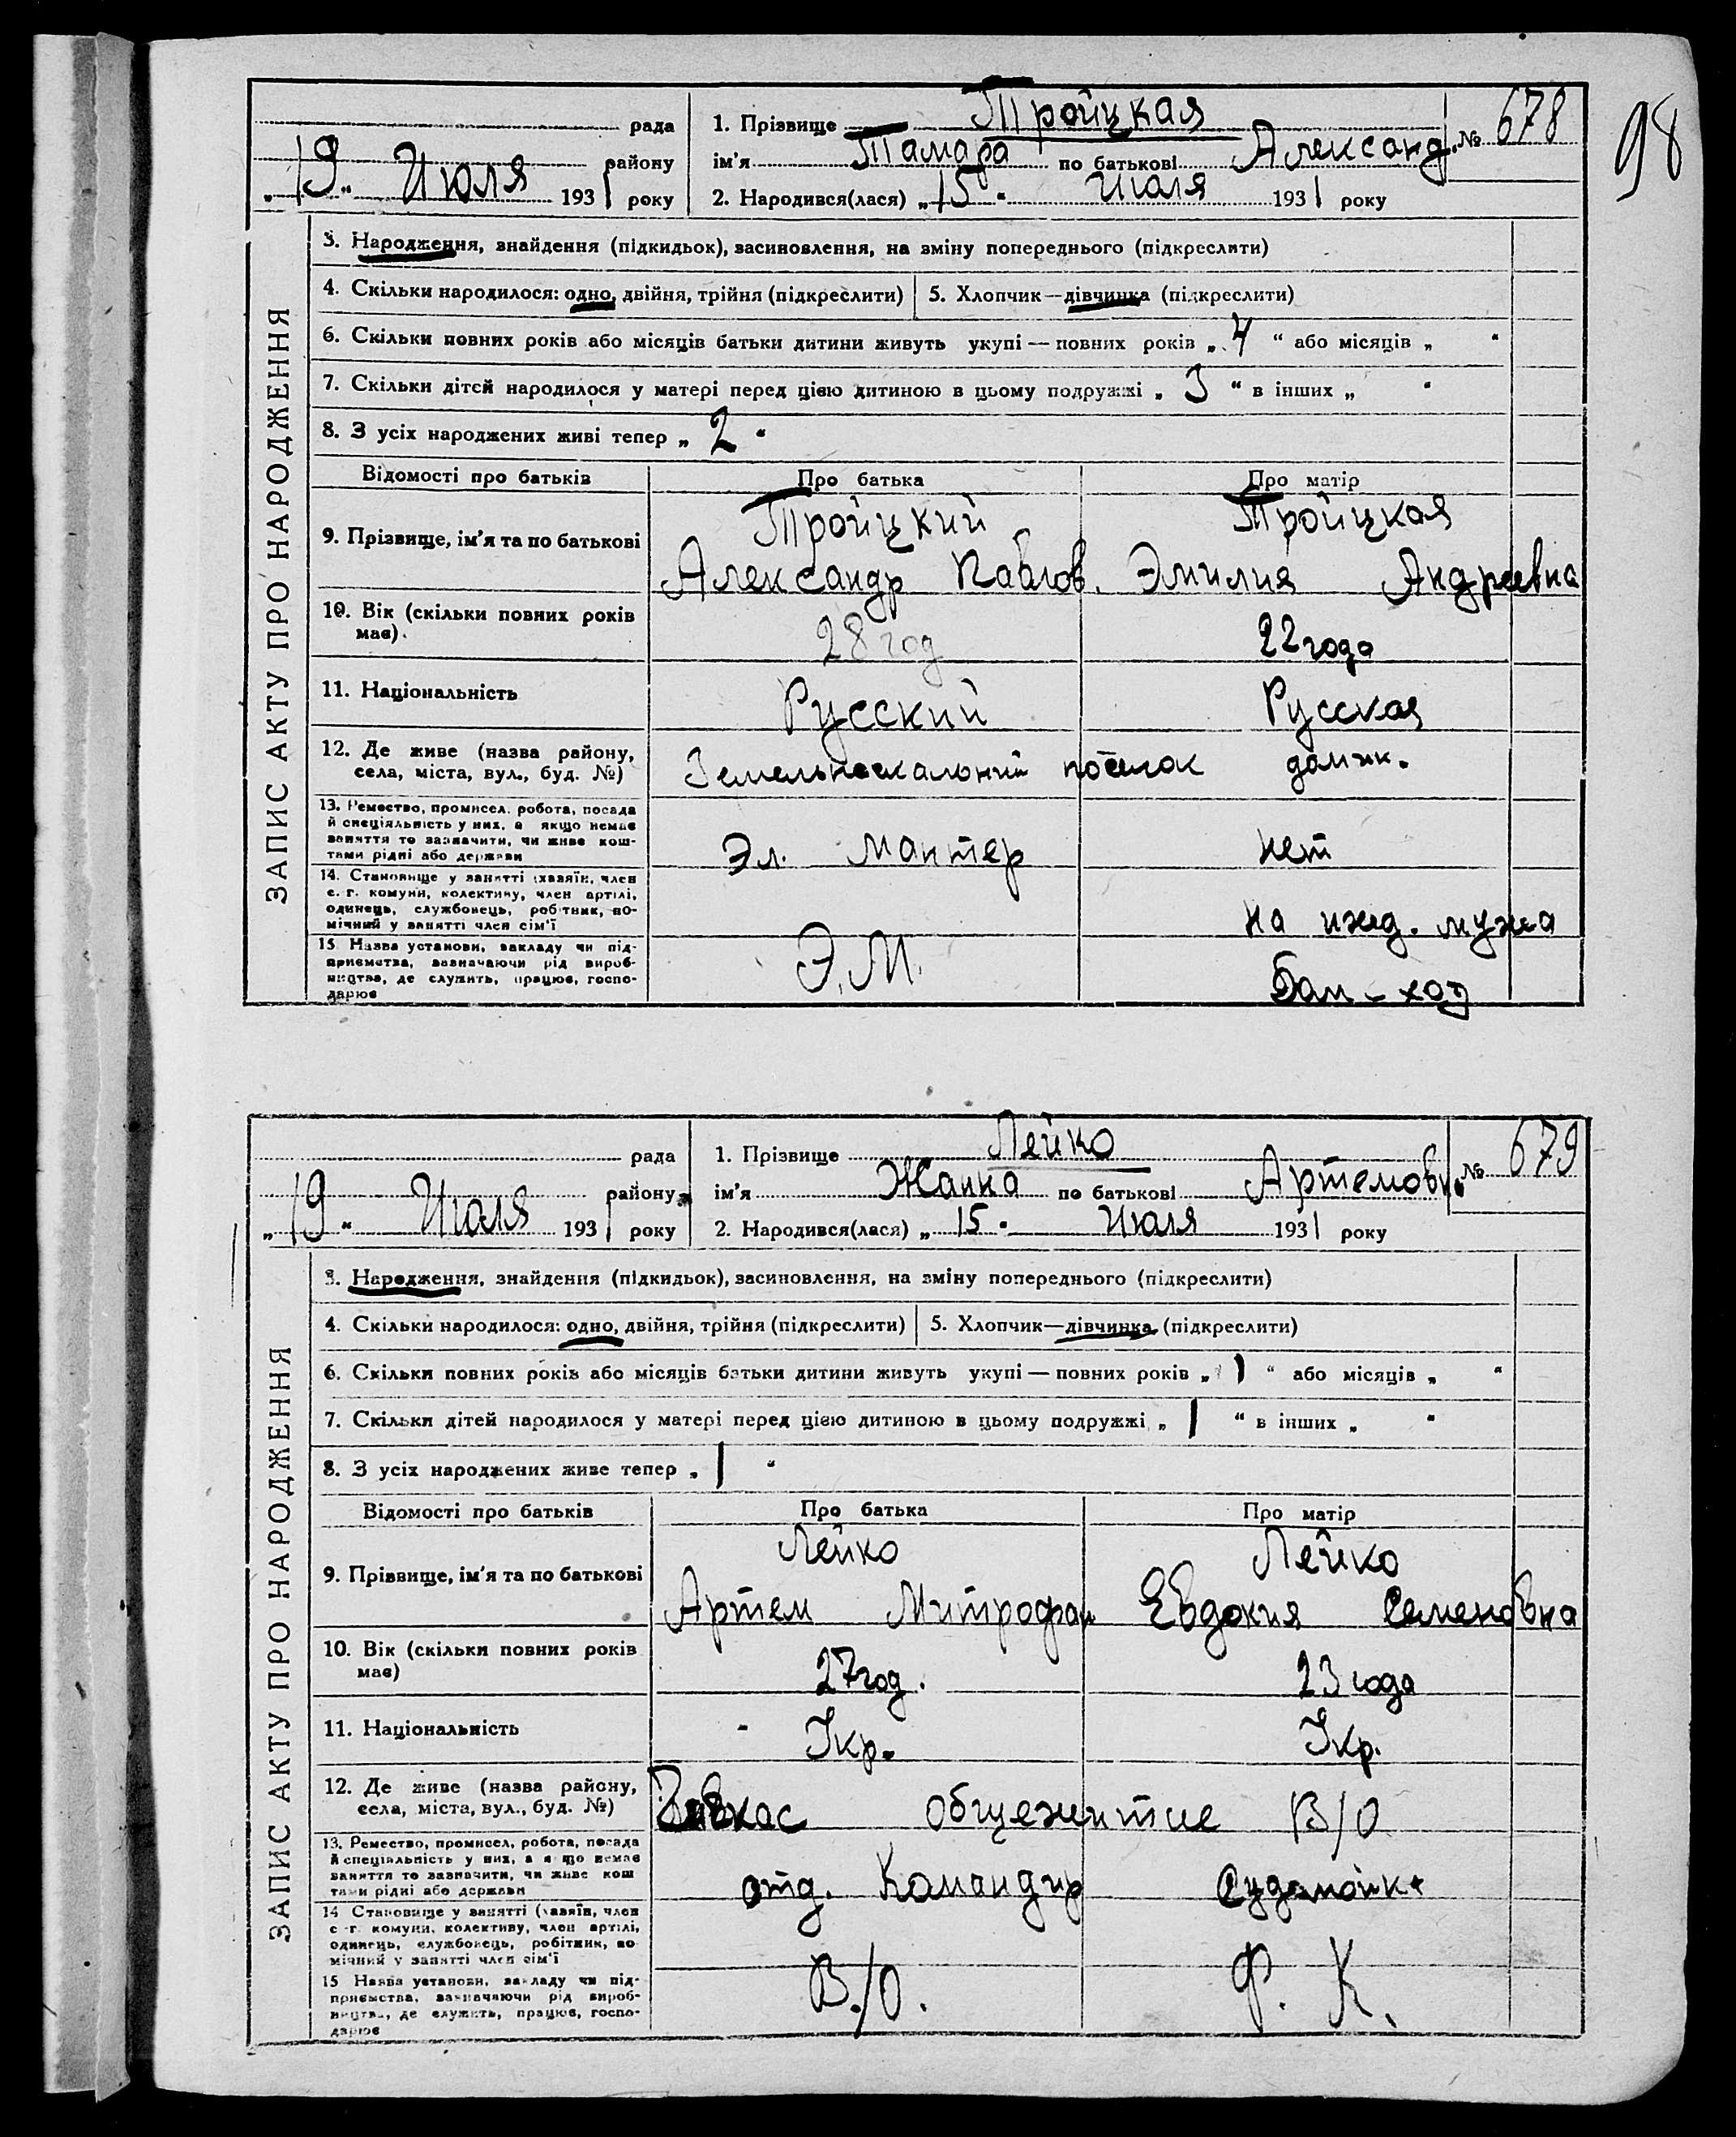 98
рада
району
„19“ Июля 1931 року
1. Прізвище Тройцкая
ім'я Тамара по батькові Александ.
2. Народився(лася) „15“ Июля 1931 року
№ 678
ЗАПИС АКТУ ПРО НАРОДЖЕННЯ
3. Народження, знайдення (підкидьок), засиновлення, на зміну попереднього (підкреслити)
4. Скільки народилося: одно, двійня, трійня (підкреслити) 5. Хлопчик—дівчинка (підкреслити)
6. Скільки повних років або місяців батьки дитини живуть укупі — повних років „4“ або місяців „ “
7. Скільки дітей народилося у матері перед цією дитиною в цьому подружжі „3“ в інших „ “
8. З усіх народжених живі тепер „2“
Відомості про батьків Про батька Про матір
9. Прізвище, ім'я та по батькові
Тройцкий Тройцкая
Александр Павлов. Эмилия Андреевна
10. Вік (скільки повних років має).
28 год 22 года
11. Національність
Русский Русская
12. Де живе (назва району, села, міста, вул., буд. №)
посёлок
13. Ремество, промисел, робота, посада й спеціяльність у них, а якщо немає заняття то зазначити, чи живе коштами рідні або держави
Эл. Мантер нет
14. Становище у занятті (хазяїн, член с.-г. комуни, колективу, член артілі, одинець, службовець, робітник, помічний у занятті член сім'ї
на ижд. мужа
15. Назва установи, закладу чи підприємства, зазначаючи рід виробництва, де служить, працює, господарює
Э.М. Дом-хоз
рада
району
„19“ Июля 1931 року
1. Прізвище Лейко
ім'я Жанна по батькові Артемовн.
2. Народився(лася) „15“ Июля 1931 року
№ 679
ЗАПИС АКТУ ПРО НАРОДЖЕННЯ
3. Народження, знайдення (підкидьок), засиновлення, на зміну попереднього (підкреслити)
4. Скільки народилося: одно, двійня, трійня (підкреслити) 5. Хлопчик—дівчинка (підкреслити)
6. Скільки повних років або місяців батьки дитини живуть укупі — повних років „1“ або місяців „ “
7. Скільки дітей народилося у матері перед цією дитиною в цьому подружжі „1“ в інших „ “
8. З усіх народжених живе тепер „1“
Відомості про батьків Про батька Про матір
9. Прізвище, ім'я та по батькові
Лейко Лейко
Артем Митрофан Евдокия Семеновна
10. Вік (скільки повних років має)
27 год. 23 года
11. Національність
Укр. Укр.
12. Де живе (назва району, села, міста, вул., буд. №)
общежитие В/О
13. Ремество, промисел, робота, посада й спеціяльність у них, а якщо немає заняття то зазначити, чи живе коштами рідні або держави
отд. Командир Судамойка
14 Становище у занятті (хазяїн, член с.-г. комуни, колективу, член артілі, одинець, службовець, робітник, помічний у занятті член сім'ї
15 Назва установи, закладу чи підприємства, зазначаючи рід виробництва, де служить, працює, господарює
В./О. Ф. К.